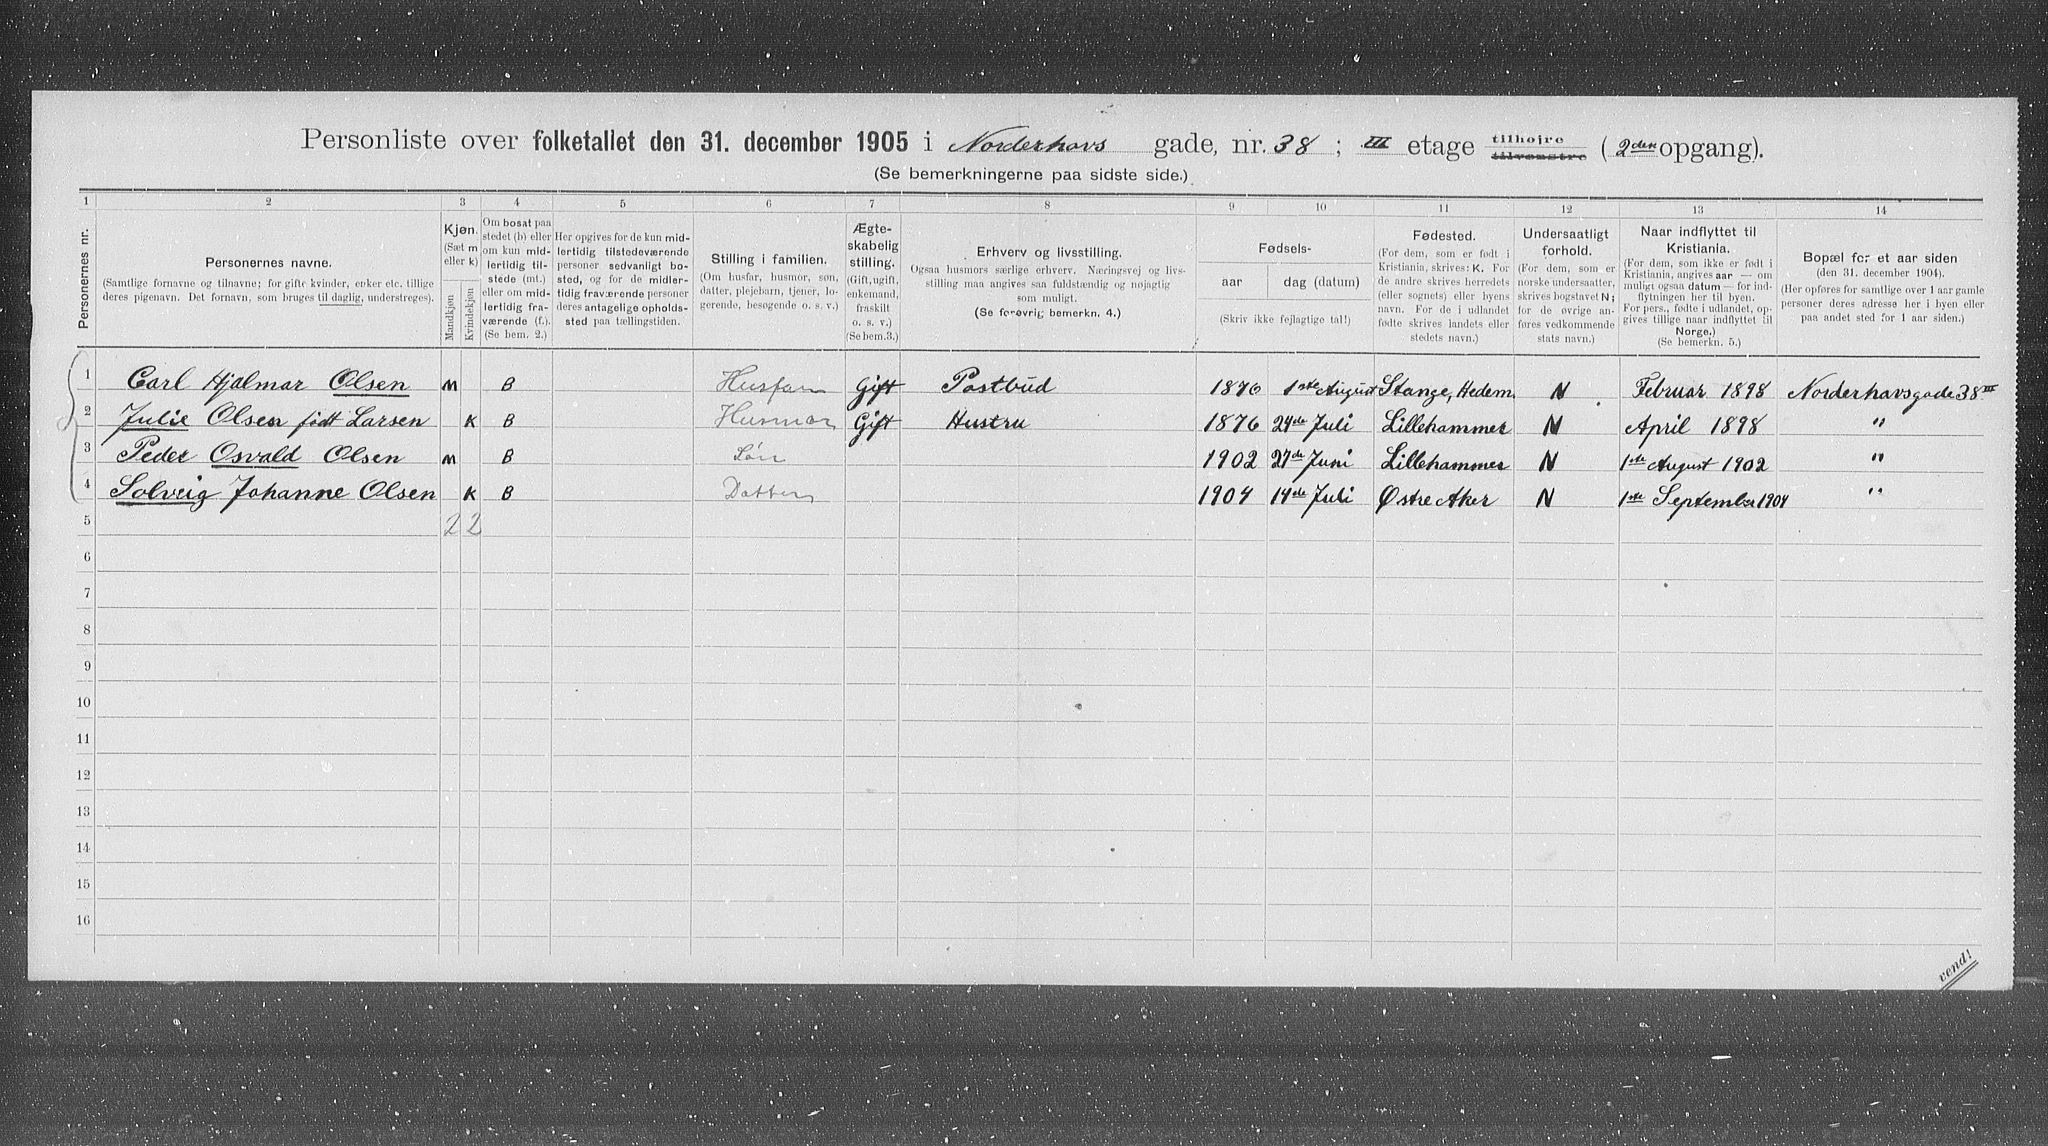 Personliste over folketallet den 31. december 1905 i Norderhovs gade, nr. 38 ; III etage tilhøire tilvenstre ( 2den opgang).
(Se bemerkningerne paa sidste side.)
1 2 3 4 5 6 7 8 9 10 11 12 13 14
Personernes nr.
Personernes navne.
(Samtlige fornavne og tilnavne; for gifte kvinder, enker etc. tillige
deres pigenavn. Det fornavn, som bruges til daglig, understreges).
Kjøn.
(Sæt m
eller k)
Mandkjøn
Kvindekjøn
Om bosat paa
stedet (b) eller
om kun midlertidig tilstede (mt.)
eller om midlertidig fraværende (f.).
(Se bem. 2.)
Her opgives for de kun midlertidig tilstedeværende
personer sedvanlig bosted, og for de midlertidig fraværende personer
deres antagelige opholdssted paa tællingstiden.
Stilling i familien.
(Om husfar, husmor, søn,
datter, plejebarn, tjener, logerende, besøgende o. s. v.)
Ægteskabelig
stilling.
(Gift, ugift,
enkemand,
fraskilt
o. s. v.)
(Se bem.3.)
Erhverv og livsstilling.
Ogsaa husmors særlige erhverv. Næringsvej og livsstilling maa angives saa fuldstændig og nøjagtig
som muligt.
(Se forøvrig bemerkn. 4.)
Fødsels-
aar dag (datum)
(Skriv ikke fejlagtige tal!)
Fødested.
(For dem, som er født i
Kristiania, skrives: K. For
de andre skrives herredets
(eller sognets) eller byens
navn. For de i udlandet
fødte skrives landets eller
stedets navn.)
Undersaatligt
forhold.
(For dem, som er
norske undersaatter,
skrives bogstavet N;
for de øvrige anføres vedkommende
stats navn.)
Naar indflyttet til
Kristiania.
(For dem, som ikke er født i
Kristiania, angives aar — om
muligt ogsaa datum — for indflytningen her til byen.
For pers., fødte i udlandet, opgives tillige naar indflyttet til
Norge.)
(Se bemerkn. 5.)
Bopæl for et aar siden
(den 31. december 1904).
(Her opføres for samtlige over 1 aar gamle
personer deres adresse her i byen eller
paa andet sted for 1 aar siden.)
1 Carl Hjalmar Olsen m B Husfar Gift Postbud 1876 1ste August Stange, Hedem. N Februar 1898 Norderhovsgade 38 III
2 Julie Olsen født Larsen K B Husmor Gift Hustru 1876 24de Juli Lillehammer N April 1898 "
3 Peder Osvald Olsen m B Søn 1902 27de Juni Lillehammer N 1ste August 1902 "
4 Solveig Johanne Olsen K B Datter 1904 14de Juli Østre Aker N 1ste September 1904 "
5 2 2
6
7
8
9
10
11
12
13
14
15
16
vend!